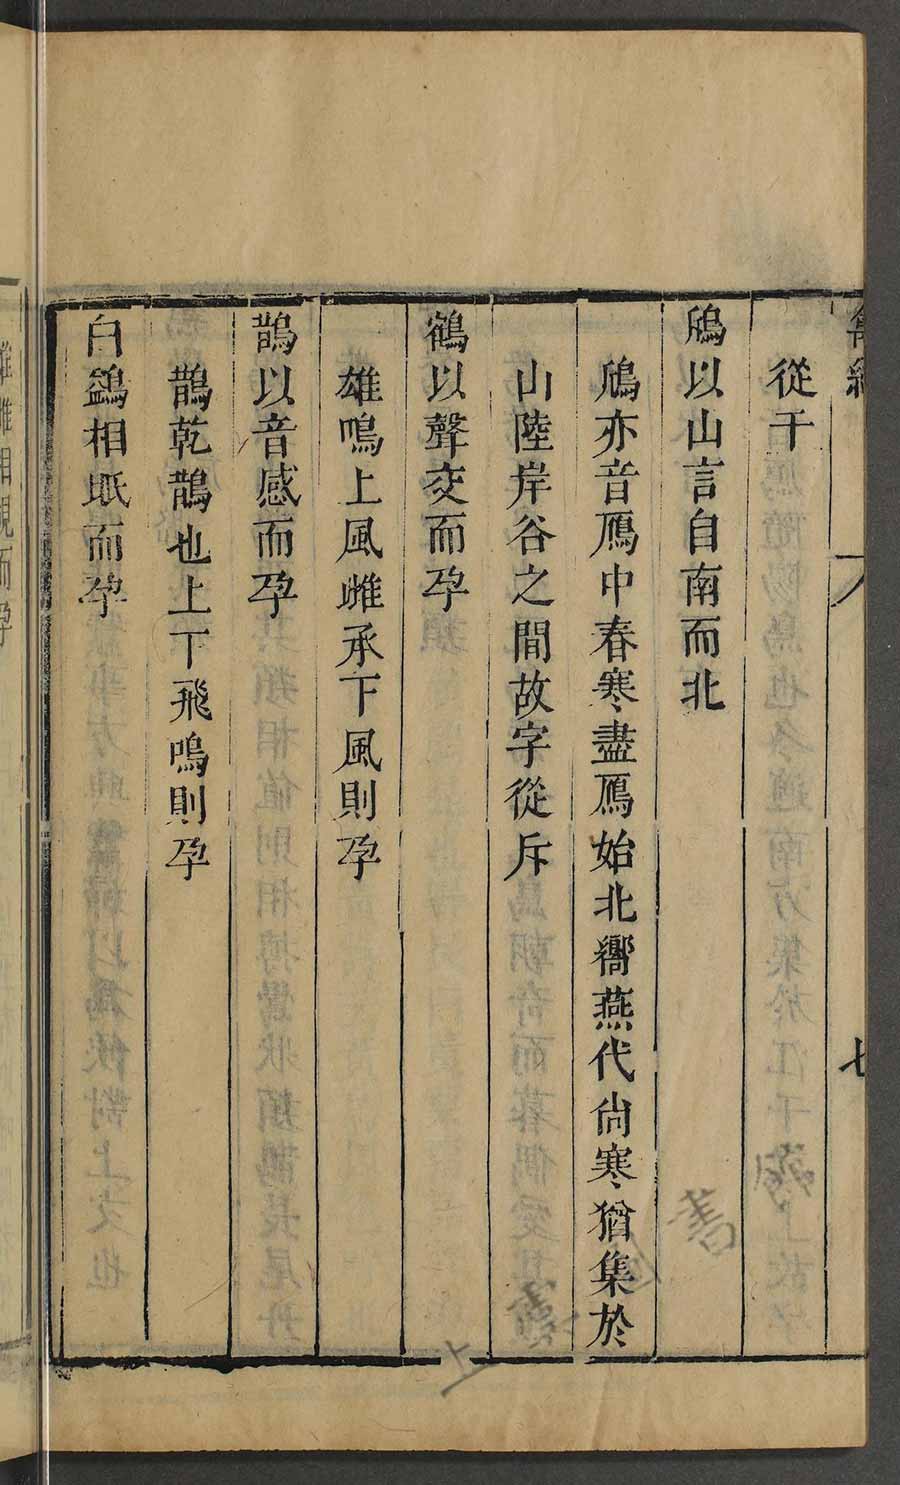 禽經
七
從干
鳫以山言自南而北
鳫亦音鴈中春寒盡鴈始北嚮燕代尚寒猶集於
山陸岸谷之間故字從斥
鶴以聲交而孕
雄鳴上風雌承下風則孕
鵲以音感而孕
鵲乾鵲也上下飛鳴則孕
白鷁相眂而孕
雌雄相視而孕